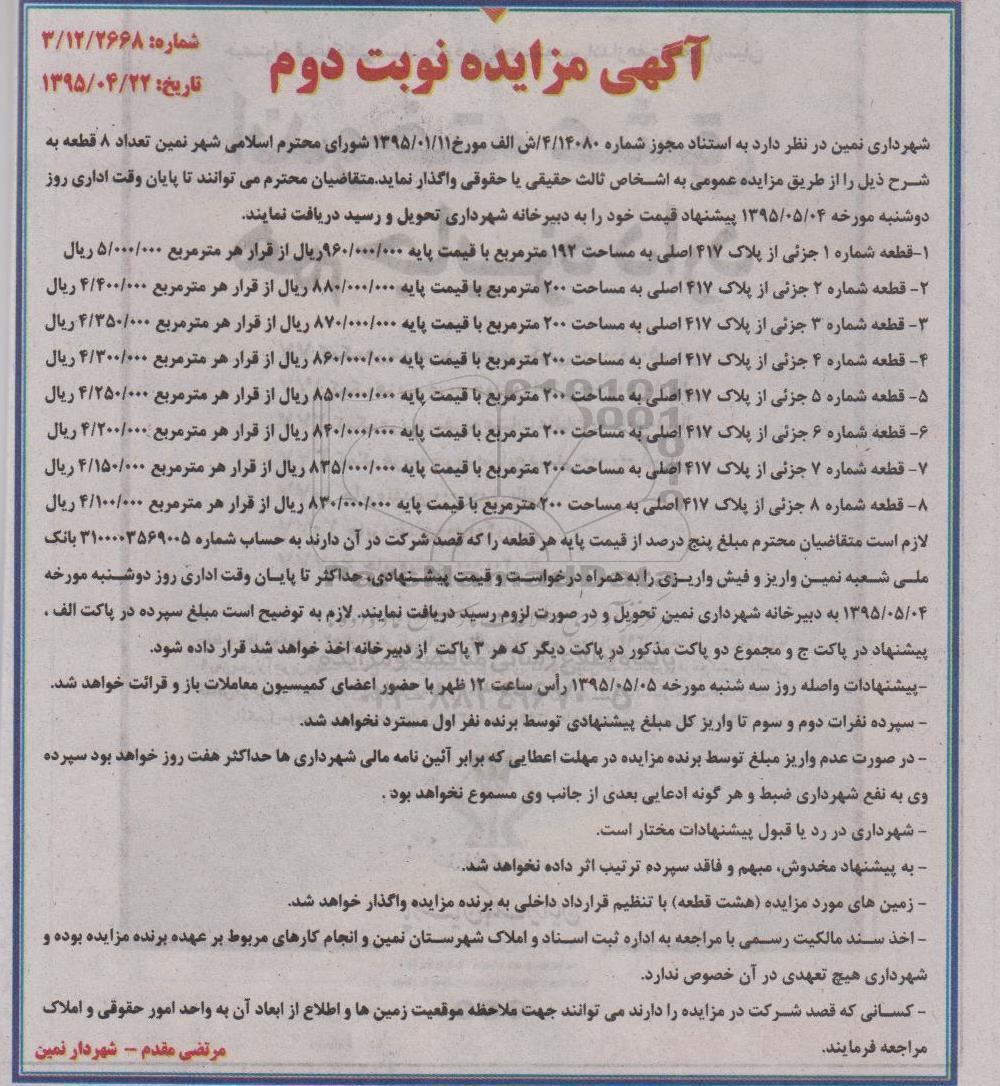 شماره: ۳/۱۲/۲۶۶۸
تاریخ: ۱۳۹۵/۰۴/۲۲
آگهی مزایده نوبت دوم
شهرداری نمین در نظر دارد به استناد مجوز شماره ۴/۱۴۰۸۰/ش الف مورخ۱۳۹۵/۰۱/۱۱ شورای محترم اسلامی شهر نمین تعداد ۸ قطعه به
شرح ذیل را از طریق مزایده عمومی به اشخاص ثالث حقیقی یا حقوقی واگذار نماید.متقاضیان محترم می توانند تا پایان وقت اداری روز
دوشنبه مورخه ۱۳۹۵/۰۵/۰۴ پیشنهاد قیمت خود را به دبیرخانه شهرداری تحویل و رسید دریافت نمایند.
۱-قطعه شماره ۱ جزئی از پلاک ۴۱۷ اصلی به مساحت ۱۹۲ مترمربع با قیمت پایه ۹۶۰/۰۰۰/۰۰۰ریال از قرار هر مترمربع ۵/۰۰۰/۰۰۰ ریال
۲- قطعه شماره ۲ جزئی از پلاک ۴۱۷ اصلی به مساحت ۲۰۰ مترمربع با قیمت پایه ۸۸۰/۰۰۰/۰۰۰ ریال از قرار هر مترمربع ۴/۴۰۰/۰۰۰ ریال
۳- قطعه شماره ۳ جزئی از پلاک ۴۱۷ اصلی به مساحت ۲۰۰ مترمربع با قیمت پایه ۸۷۰/۰۰۰/۰۰۰ ریال از قرار هر مترمربع ۴/۳۵۰/۰۰۰ ریال
۴- قطعه شماره ۴ جزئی از پلاک ۴۱۷ اصلی به مساحت ۲۰۰ مترمربع با قیمت پایه ۸۶۰/۰۰۰/۰۰۰ ریال از قرار هر مترمربع ۴/۳۰۰/۰۰۰ ریال
۵- قطعه شماره ۵ جزئی از پلاک ۴۱۷ اصلی به مساحت ۲۰۰ مترمربع با قیمت پایه ۸۵۰/۰۰۰/۰۰۰ ریال از قرار هر مترمربع ۴/۲۵۰/۰۰۰ ریال
۶- قطعه شماره ۶ جزئی از پلاک ۴۱۷ اصلی به مساحت ۲۰۰ مترمربع با قیمت پایه ۸۴۰/۰۰۰/۰۰۰ ریال از قرار هر مترمربع ۴/۲۰۰/۰۰۰ ریال
۷- قطعه شماره ۷ جزئی از پلاک ۴۱۷ اصلی به مساحت ۲۰۰ مترمربع با قیمت پایه ۸۳۵/۰۰۰/۰۰۰ ریال از قرار هر مترمربع ۴/۱۵۰/۰۰۰ ریال
۸- قطعه شماره ۸ جزئی از پلاک ۴۱۷ اصلی به مساحت ۲۰۰ مترمربع با قیمت پایه ۸۳۰/۰۰۰/۰۰۰ ریال از قرار هر مترمربع ۴/۱۰۰/۰۰۰ ریال
لازم است متقاضیان محترم مبلغ پنج درصد از قیمت پایه هر قطعه را که قصد شرکت در آن دارند به حساب شماره ۳۱۰۰۰۰۳۵۶۹۰۰۵ بانک
ملی شعبه نمین واریز و فیش واریزی را به همراه درخواست و قیمت پیشنهادی، حداکثر تا پایان وقت اداری روز دوشنبه مورخه
۱۳۹۵/۰۵/۰۴ به دبیرخانه شهرداری نمین تحویل و در صورت لزوم رسید دریافت نمایند. لازم به توضیح است مبلغ سپرده در پاکت الف ،
پیشنهاد در پاکت ج و مجموع دو پاکت مذکور در پاکت دیگر که هر ۳ پاکت از دبیرخانه اخذ خواهد شد قرار داده شود.
-پیشنهادات واصله روز سه شنبه مورخه ۱۳۹۵/۰۵/۰۵ رأس ساعت ۱۲ ظهر با حضور اعضای کمیسیون معاملات باز و قرائت خواهد شد.
- سپرده نفرات دوم و سوم تا واریز کل مبلغ پیشنهادی توسط برنده نفر اول مسترد نخواهد شد.
- در صورت عدم واریز مبلغ توسط برنده مزایده در مهلت اعطایی که برابر آئین نامه مالی شهرداری ها حداکثر هفت روز خواهد بود سپرده
وی به نفع شهرداری ضبط و هر گونه ادعایی بعدی از جانب وی مسموع نخواهد بود .
- شهرداری در رد یا قبول پیشنهادات مختار است.
- به پیشنهاد مخدوش، مبهم و فاقد سپرده ترتیب اثر داده نخواهد شد.
- زمین های مورد مزایده (هشت قطعه) با تنظیم قرارداد داخلی به برنده مزایده واگذار خواهد شد.
- اخذ سند مالکیت رسمی با مراجعه به اداره ثبت اسناد و املاک شهرستان نمین و انجام کارهای مربوط بر عهده برنده مزایده بوده و
شهرداری هیچ تعهدی در آن خصوص ندارد.
- کسانی که قصد شرکت در مزایده را دارند می توانند جهت ملاحظه موقعیت زمین ها و اطلاع از ابعاد آن به واحد امور حقوقی و املاک
مراجعه فرمایند.
مرتضی مقدم - شهردار نمین